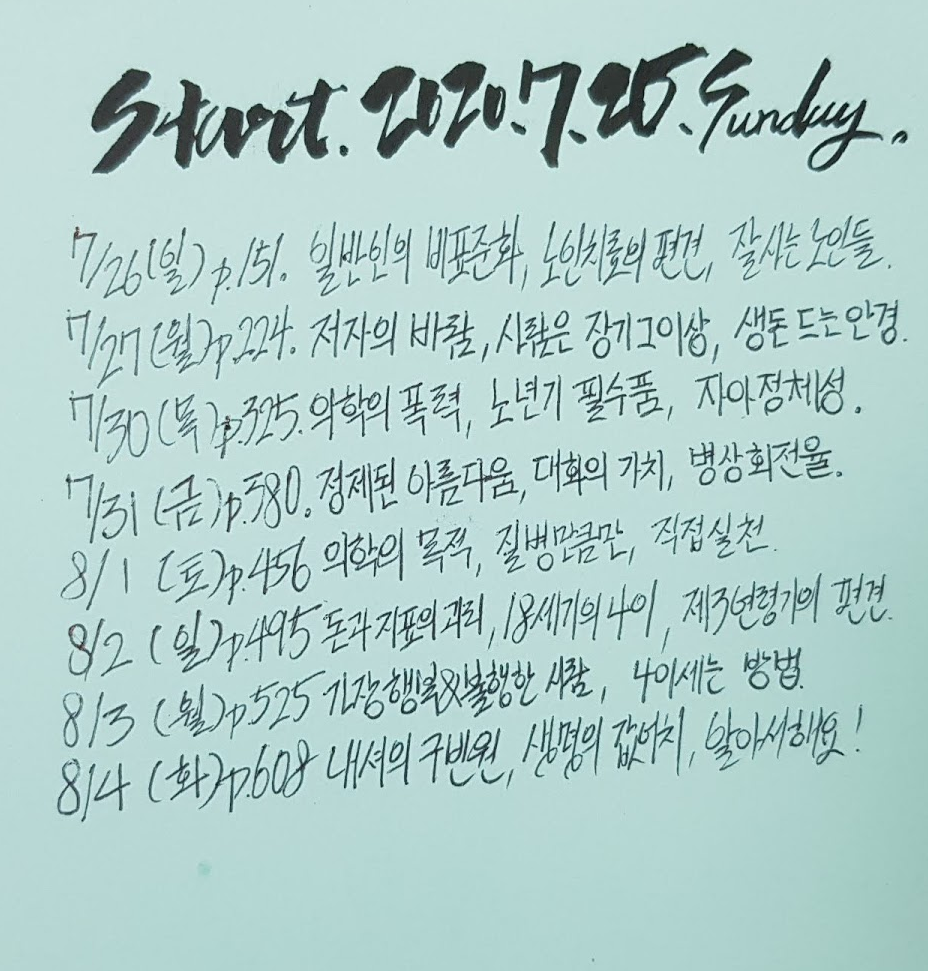 Start. 2020.7.25. Sunday.
7/26(일) p.151. 일반인의 비표준화, 노인치료의 편견, 잘사는 노인들.
7/27(월)p.224. 저자의 바람, 사람은 장기그이상, 생돈 드는 안경.
7/30(목)p.325. 의학의 폭력, 노년기 필수품, 자아정체성.
7/31(금)p.380. 정제된 아름다움, 대화의 가치, 병상회전율.
8/1 (토)p.456 의학의 목적, 질병만큼만, 직접실천.
8/2 (일)p.495 돈과 지표의 괴리, 18세기의 나이, 제3연령기의 편견.
8/3 (월)p.525 가장행복&불행한 사람, 나이세는 방법.
8/4 (화)p.608 내셔의 구빈원, 생명의 값어치, 알아서해요!